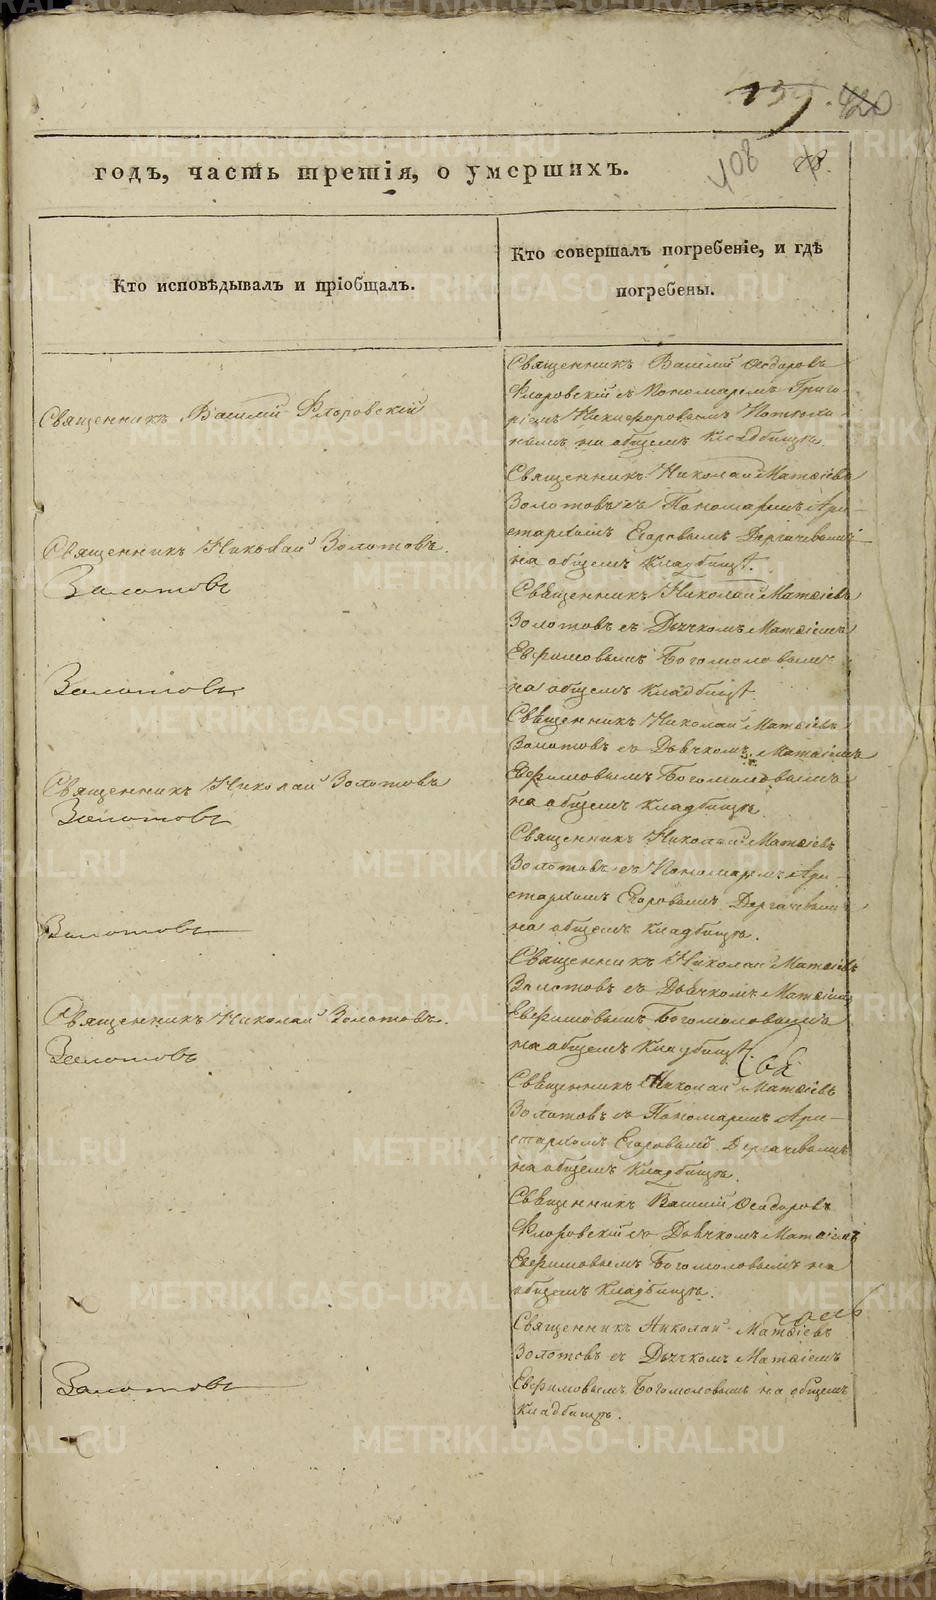 420
408
годъ, часть третія, о умершихъ.
Кто исповѣдывалъ и пріобщалъ.
Кто совершалъ погребеніе, и гдѣ
погребены.
Священникъ Василій Флоровскій
Священникъ Николай Золотовъ.
Золотовъ
Золотовъ
Священникъ Николай Золотовъ
Золотовъ
Золотовъ
Священникъ Николай Золотовъ.
Золотовъ
Золотовъ
Священникъ Василій Ѳеодоровъ
Флоровскій съ Пономаремъ Григо-
ріемъ Никифоровымъ
на общемъ Кладбищѣ.
Священникъ Николай Матѳіевъ
Золотовъ съ Пономаремъ Ари-
стархомъ Егоровымъ Дергачевымъ
на общемъ Кладбищѣ.
Священникъ Николай Матѳіевъ
Золотовъ съ Дьячкомъ Матѳіемъ
Евфимовымъ Богомоловымъ
на общемъ Кладбищѣ.
Священникъ Николай Матѳіевъ
Золотовъ съ Дьячкомъ Матѳіемъ
Евфимовымъ Богомоловымъ
на общемъ Кладбищѣ.
Священникъ Николай Матѳіевъ
Золотовъ съ Пономаремъ Ари-
стархомъ Егоровымъ Дергачевымъ
на общемъ Кладбищѣ.
Священникъ Николай Матѳіевъ
Золотовъ съ Дьячкомъ Матѳіемъ
Евфимовымъ Богомоловымъ
на общемъ Кладбищѣ.
Священникъ Николай Матѳіевъ
Золотовъ съ Пономаремъ Ари-
стархомъ Егоровымъ Дергачевымъ
на общемъ Кладбищѣ.
Священникъ Василій Ѳеодоровъ
Флоровскій съ Дьячкомъ Матѳіемъ
Евфимовымъ Богомоловымъ на
общемъ Кладбищѣ.
Священникъ Николай Матѳіевъ
Золотовъ съ Дьячкомъ Матѳіемъ
Евфимовымъ Богомоловымъ на общемъ
Кладбищѣ.
METRIKI.GASO-URAL.RU